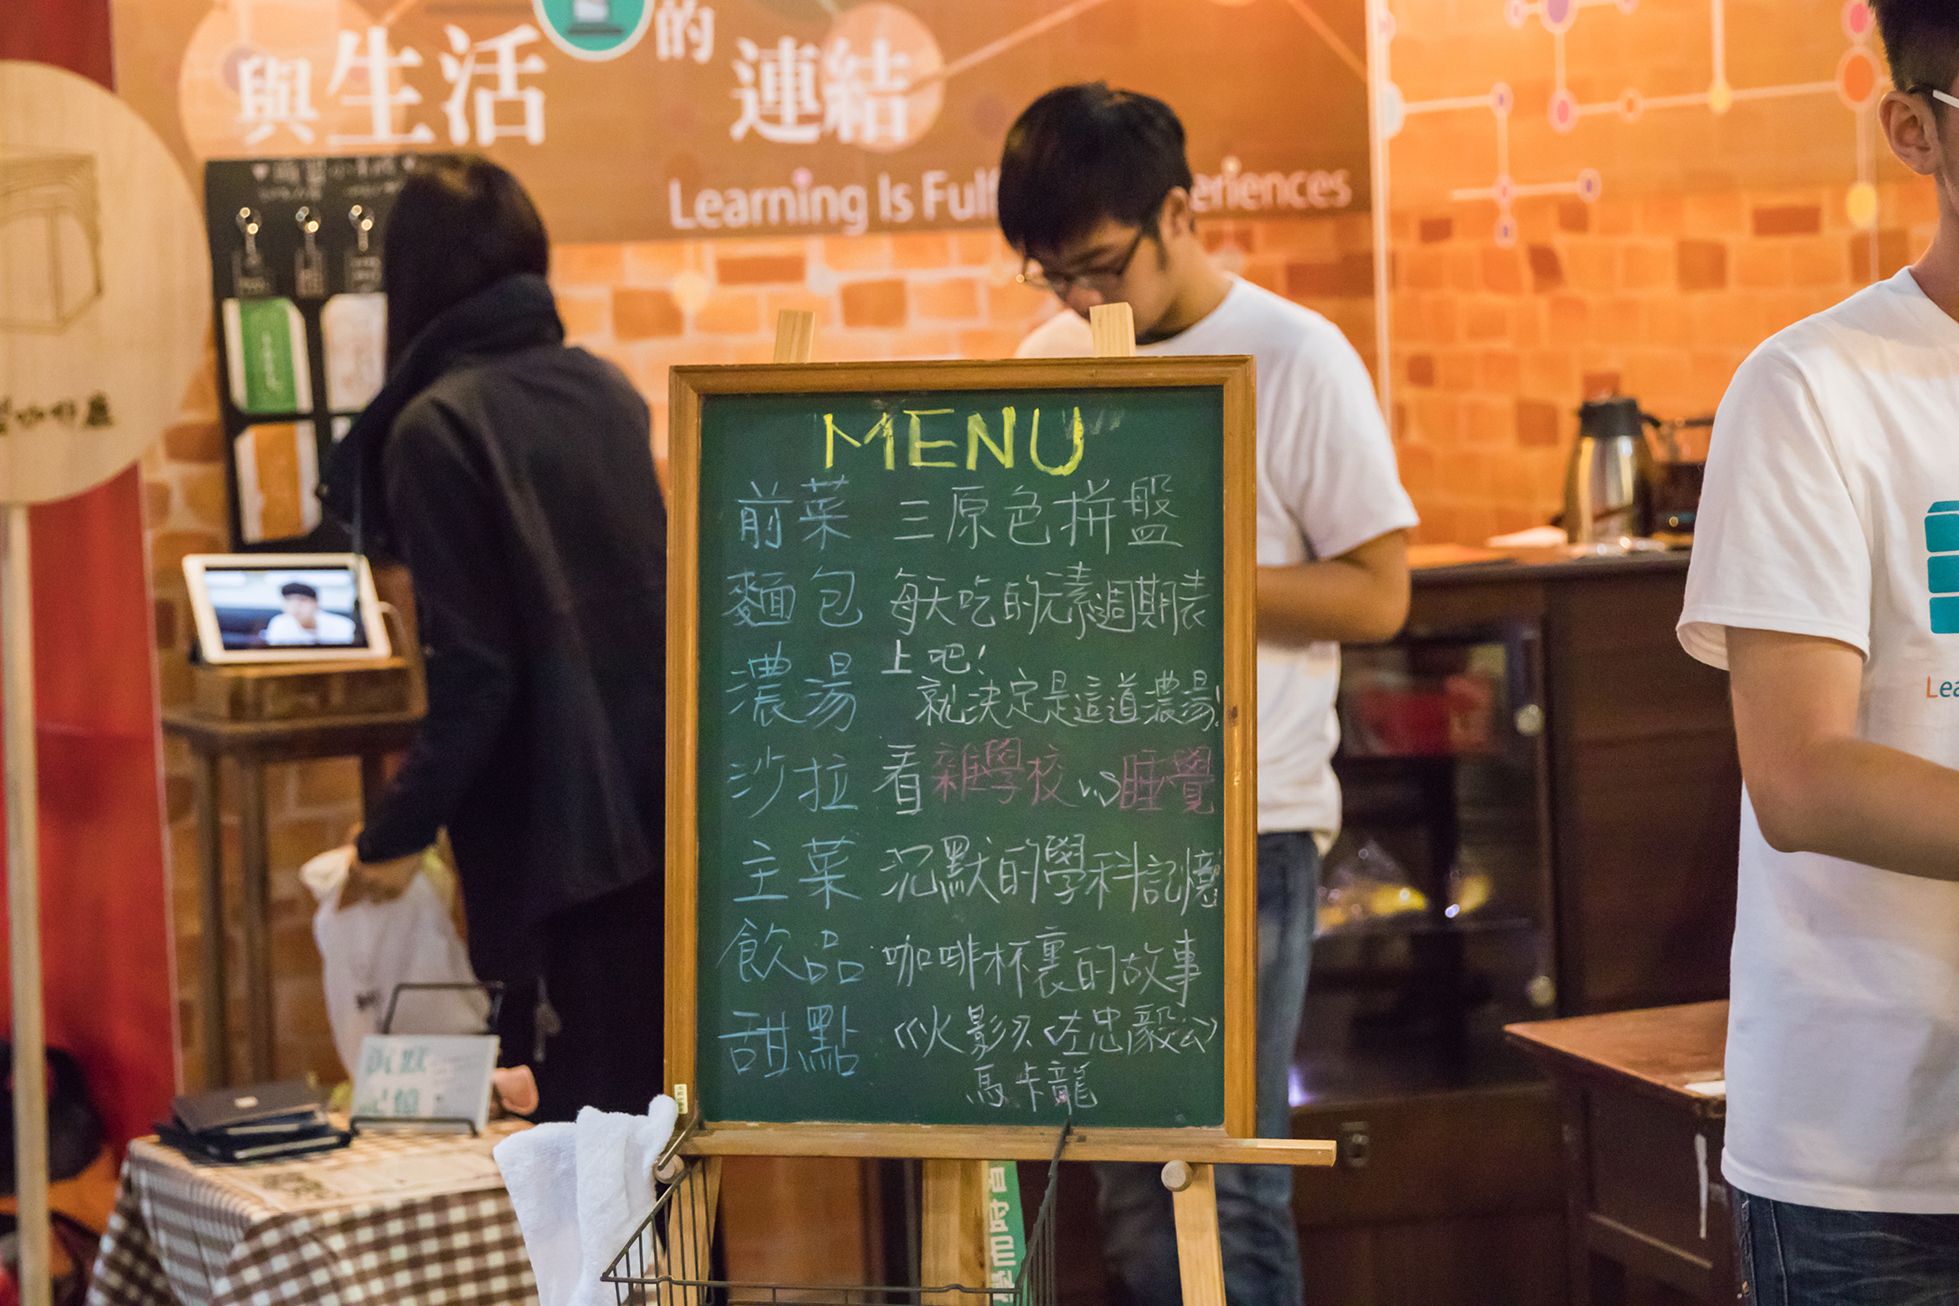 與生活的連結
Learning Is Ful
eriences
咖啡廳
MENU
前菜 三原色拼盤
麵包 每天吃的元素週期表
上吧!
濃湯 就決定是這道濃湯!
沙拉 看雜學校vs睡覺
主菜 沉默的學科記憶
飲品 咖啡杯裏的故事
甜點 《火影》忍 左忠毅公》
馬卡龍
沉默
記憶
Lea